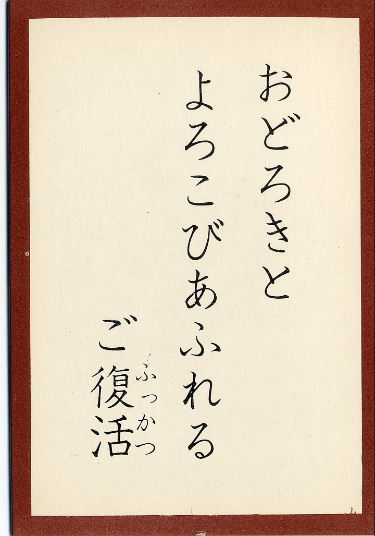 おどろきと
よろこびあふれる
ご復活
ふっかつ